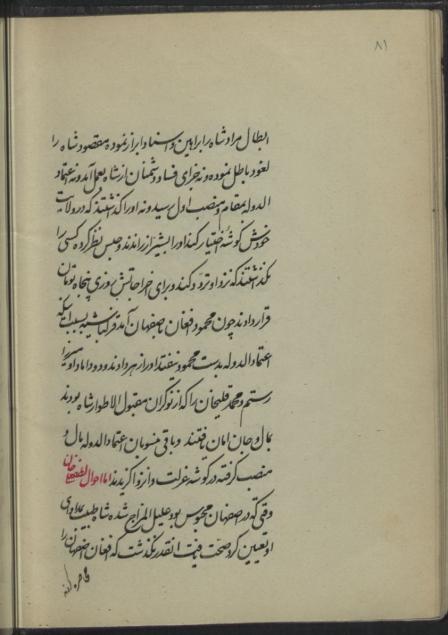 ۸۱
ابطال مراد شاه را براهین و اسناد ابراز نموده مقصود شاه را
لغو و باطل نموده و نه جزای فساد دشمنان از شاه بعمل آمد و نه اعتماد
الدوله بمقام و منصب اول رسید و نه او را گذاشتند که در ولایت
خودش گوشه اختیار کند او را بشیراز راندند و حبس نظر کرده کسی را
نگذاشتند که نزد او تردد کند و برای اخراجاتش روزی پنجاه تومان
قرار دادند چون محمود افغان باصفهان آمد قزلباشیه بسبب اینکه
اعتماد الدوله بدست محمود نیفتد او را زهر دادند و دو داماد او
رستم و محمد قلیخان را که از نوکران مقبول الاطوار شاه بودند
بمال و جان امان یافتند و باقی منسوبان اعتماد الدوله بال و
منصب گرفته در گوشه عزلت و انزوا گزیدند اما احوال لطفعلی خان
وقتی که در اصفهان محبوس بود علیل المزاج شده شاه طبیب بمداوای
او تعیین کرد صحت یافت آنقدر نگذشت که افغان اصفهان را